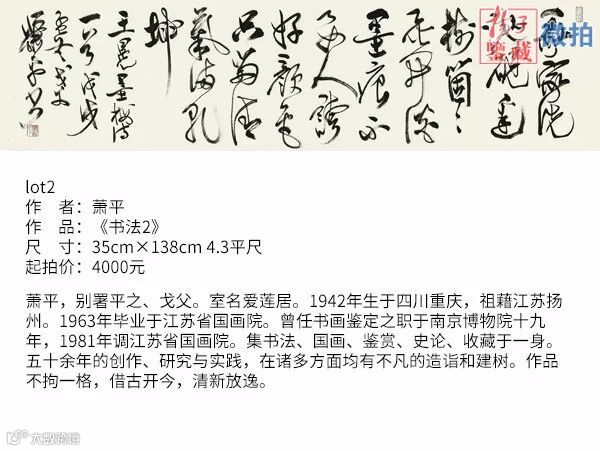 家洗
樹箇〻
花開淡
墨痕不
人誇
好顏色
只留清
氣滿乾
坤
王冕墨梅詩
一首戊戌
扬子
鉴藏
微拍
lot2
作　者：萧平
作　品：《书法2》
尺　寸：35cm×138cm 4.3平尺
起拍价：4000元
萧平，别署平之、戈父。室名爱莲居。1942年生于四川重庆，祖藉江苏扬
州。1963年毕业于江苏省国画院。曾任书画鉴定之职于南京博物院十九
年，1981年调江苏省国画院。集书法、国画、鉴赏、史论、收藏于一身。
五十余年的创作、研究与实践，在诸多方面均有不凡的造诣和建树。作品
不拘一格，借古开今，清新放逸。
大数跨境